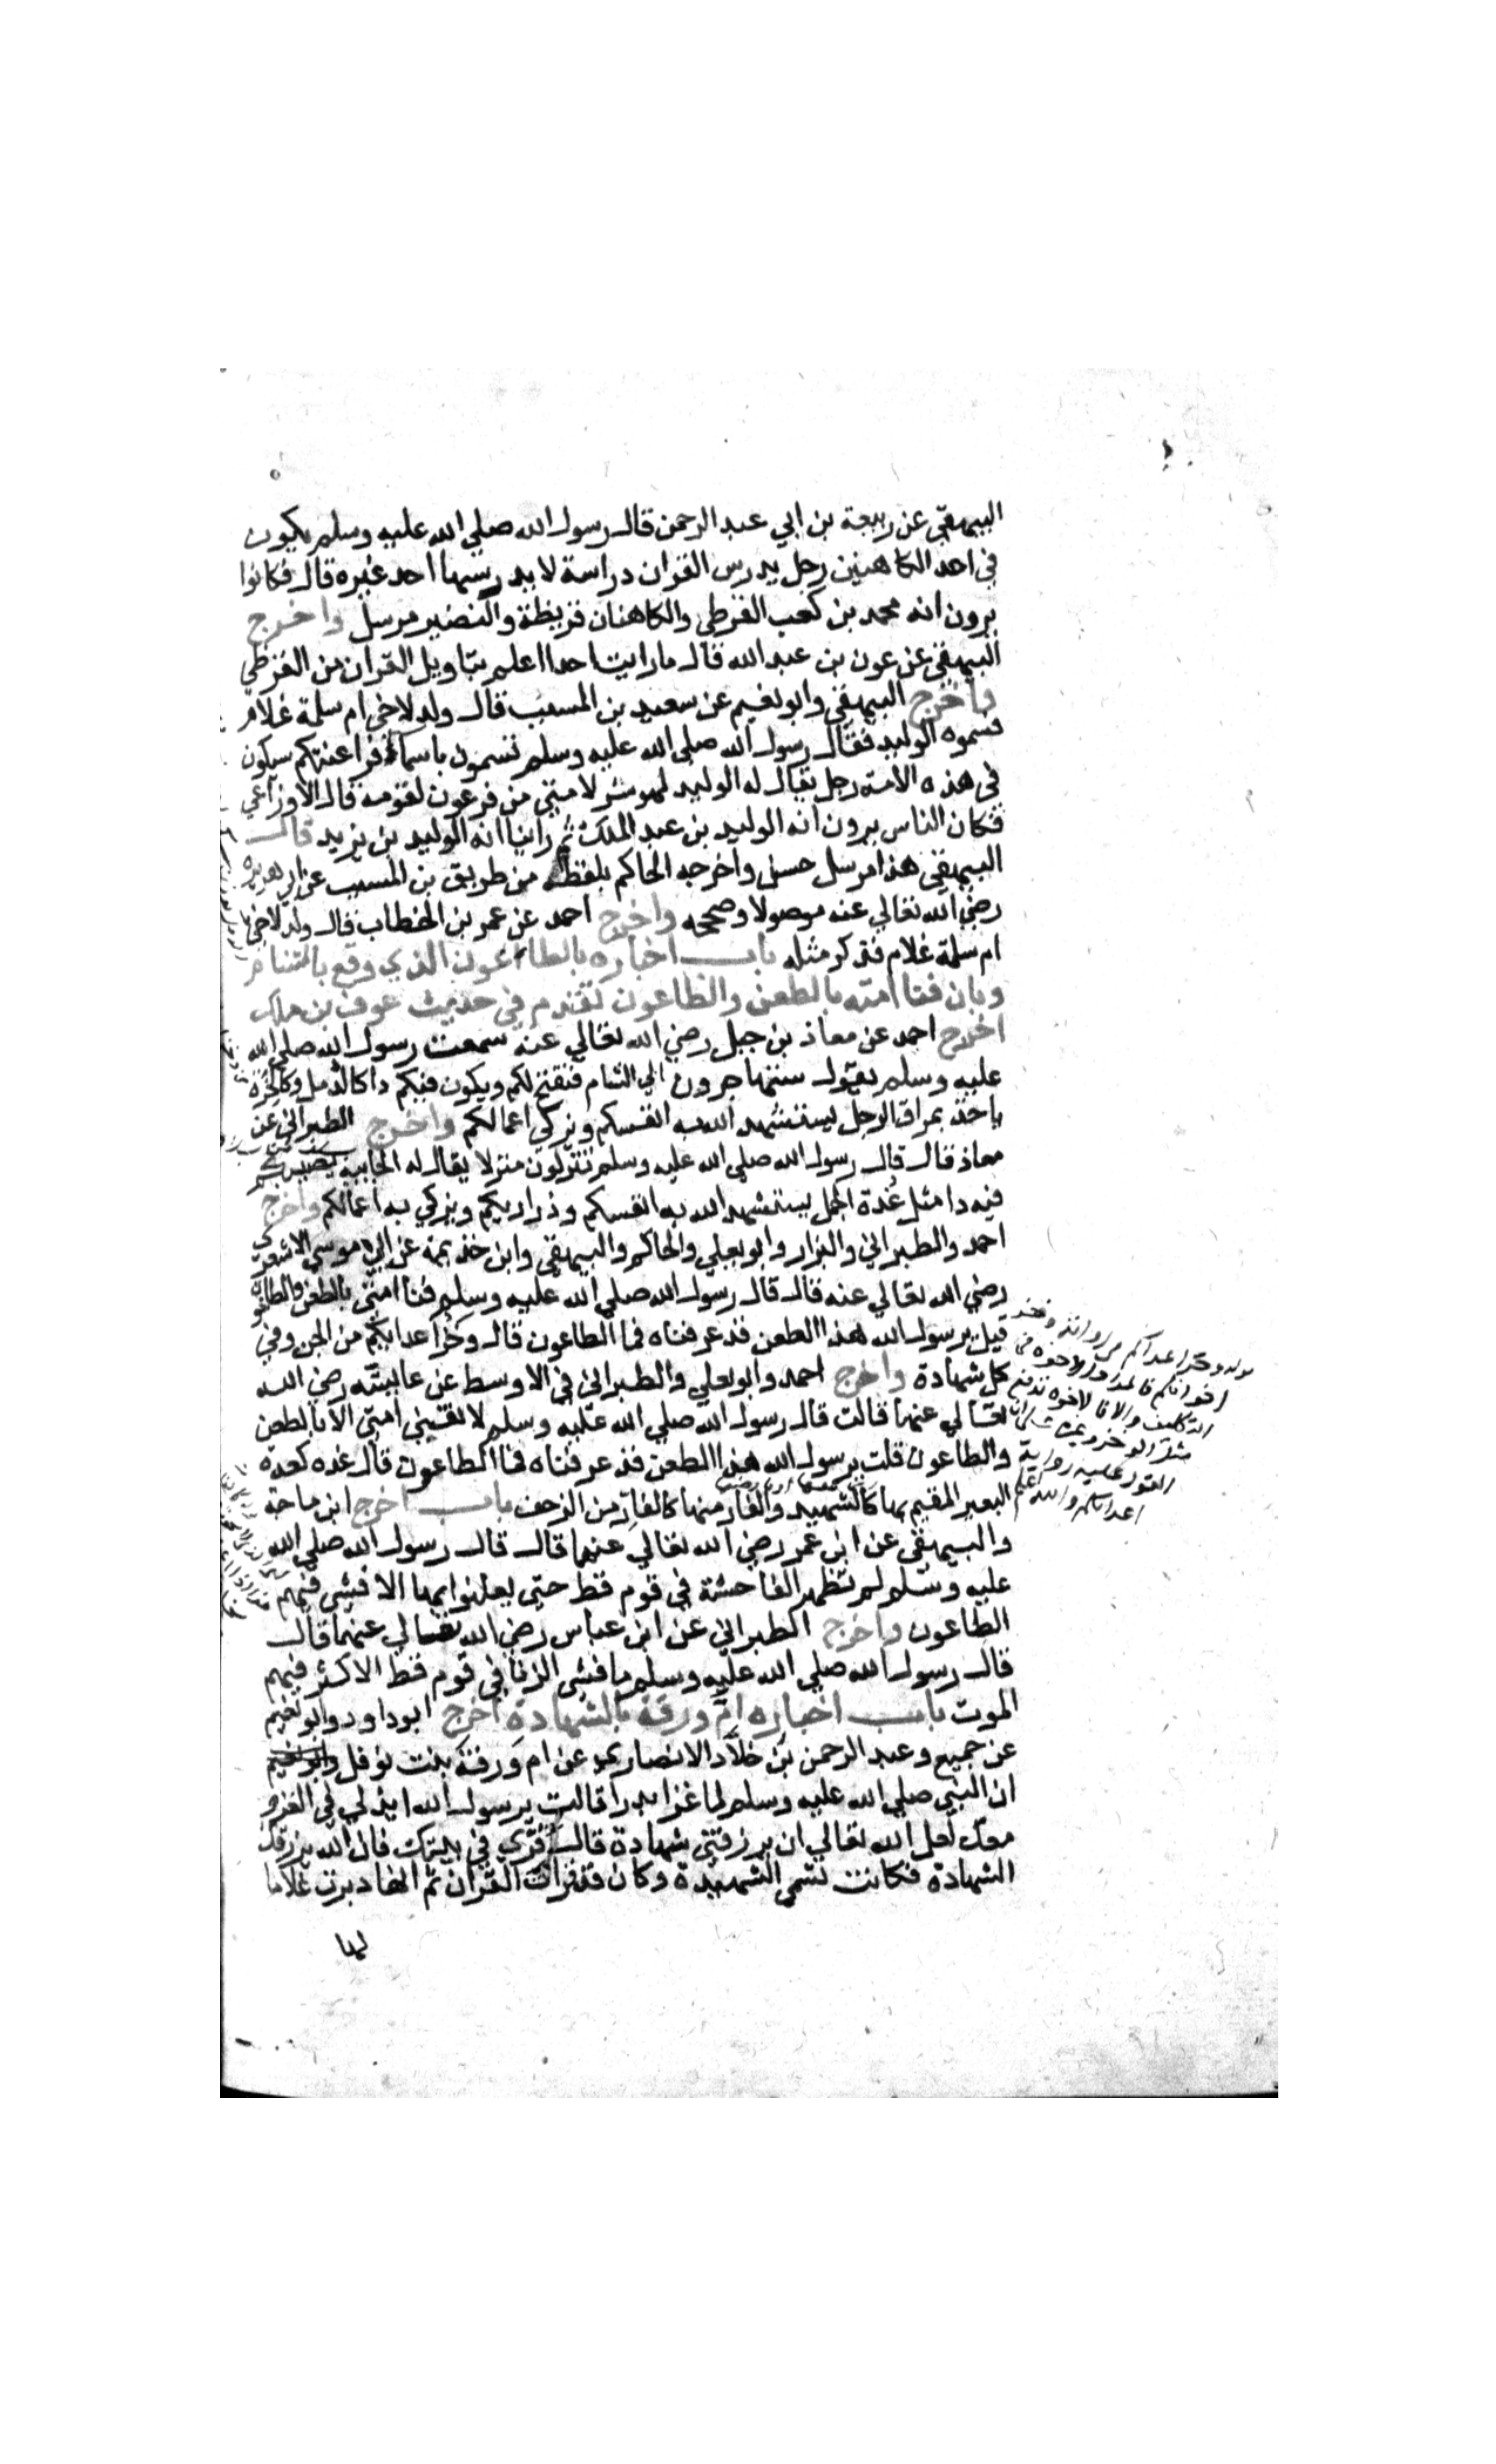 البيهقي عن ربيعة بن ابي عبد الرحمن قال رسول الله صلي الله عليه وسلم يكون
في احد الكاهنين رجل يدرس القران دراسة لا يدرسها احد غيره قال فكانوا
يرون انه محمد بن كعب القرظي والكاهنان قريظة والنضير مرسل واخرج
البيهقي عن عون بن عبد الله قال ما رايت احدا اعلم بتاويل القران من القرظي
واخرج البيهقي وابو نعيم عن سعيد بن المسيب قال ولد لاخي ام سلمة غلام
فسموه الوليد فقال رسول الله صلي الله عليه وسلم تسمون باسماء فراعنتكم سيكون
في هذه الامة رجل يقال له الوليد لهو شر لامتي من فرعون لقومه قال الاوزاعي
فكان الناس يرون انه الوليد بن عبد الملك ثم راينا انه الوليد بن يزيد قال
البيهقي هذا مرسل حسن واخرجه الحاكم بلفظه من طريق بن المسيب عن ابي هريرة
رضي الله تعالي عنه موصولا وصححه واخرج احمد عن عمر بن الخطاب قال ولد لاخي
ام سلمة غلام فذكر مثله باب اخباره بالطاعون الذي وقع بالشام
وبان فنا امته بالطعن والطاعون تقدم في حديث عوف بن ملك
اخرج احمد عن معاذ بن جبل رضي الله تعالي عنه سمعت رسول الله صلي الله
عليه وسلم يقول ستهاجرون الي الشام فتفتح لكم ويكون فيكم دا كالدمل وكالحزة
ياخذ بمراق الرجل يستشهد الله به انفسكم ويزكي اعمالكم واخرج الطبراني عن
معاذ قال قال رسول الله صلي الله عليه وسلم تنزلون منزلا يقال له الجابية يصيبكم
فيه دا مثل غدة الجمل يستشهد الله به انفسكم وذراريكم ويزكي به اعمالكم واخرج
احمد والطبراني والبزار وابو يعلي والحاكم والبيهقي وابن خذيمة عن ابي موسي الاشعري
رضي الله تعالي عنه قال قال رسول الله صلي الله عليه وسلم فنا امتي بالطعن والطاعون
قيل يرسول الله هذا الطعن قد عرفناه فما الطاعون قال وخز اعدايكم من الجن وفي
كل شهادة واخرج احمد وابو يعلي والطبراني في الاوسط عن عايشة رضي الله
تعالي عنها قالت قال رسول الله صلي الله عليه وسلم لا تفني امتي الا بالطعن
والطاعون قلت يرسول الله هذا الطعن قد عرفناه فما الطاعون قال غده كغدة
البعير المقيم بها كالشهيد والفار منها كالفار من الزحف باب اخرج ابن ماجة
والبيهقي عن ابن عمر رضي الله تعالي عنهما قال قال رسول الله صلي الله
عليه وسلم لم تظهر الفاحشة في قوم قط حتي يعلنوا بها الا فشي فيهم
الطاعون واخرج الطبراني عن ابن عباس رضي الله تعالي عنهما قال
قال رسول الله صلي الله عليه وسلم ما فشي الزنا في قوم قط الا كثر فيهم
الموت باب اخباره ام ورقة بالشهادة اخرج ابو داود وابو نعيم
عن جميع وعبد الرحمن بن خلاد الانصاري عن ام ورقة بنت نوفل
ان النبي صلي الله عليه وسلم لما غزا بدرا قالت يرسول الله ايذن لي في الغزو
معك لعل الله تعالي ان يرزقني شهادة قال قري في بيتك فان الله يرزقك
الشهادة فكانت تسمي الشهيدة وكان قد قرات القران ثم انها دبرت غلاما
لها
اعدايكم والله اعلم